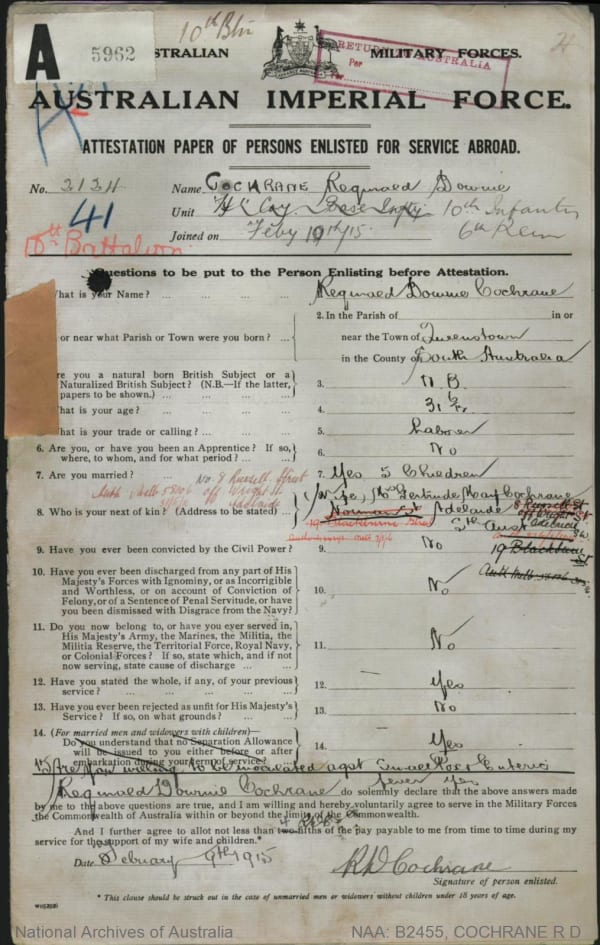 10th Btn
A 5962
AUSTRALIAN MILITARY FORCES.
RETURNED TO AUSTRALIA
Per
AUSTRALIAN IMPERIAL FORCE.
ATTESTATION PAPER OF PERSONS ENLISTED FOR SERVICE ABROAD.
No. 2124 Name COCHRANE Reginald Downie
41 Unit "H" Coy. Base Infty 10th Infantry
10th Battalion Joined on Feby 19th/15 6th Rein
Questions to be put to the Person Enlisting before Attestation.
What is your Name? ... Reginald Downie Cochrane
2. In the Parish of in or
or near what Parish or Town were you born? ... near the Town of Queenstown
in the County of South Australia
Are you a natural born British Subject or a
Naturalized British Subject? (N.B.—If the latter, 3. N.B.
papers to be shown.) ...
What is your age? ... 4. 31
What is your trade or calling? ... 5. Laborer
6. Are you, or have you been an Apprentice? If so, 6. No
where, to whom, and for what period? ...
7. Are you married? ... No. 8 Russell Street 7. Yes 5 Children
off Wright St Adelaide
8. Who is your next of kin? (Address to be stated) ... Wife, Mrs Gertrude May Cochrane
Norman St Adelaide 8 Russell St
off Wright St Adelaide
19 Blackburn Sth Aust
9. Have you ever been convicted by the Civil Power? 9. No 19 Blackburn St
10. Have you ever been discharged from any part of His
Majesty's Forces with Ignominy, or as Incorrigible
and Worthless, or on account of Conviction of 10. No
Felony, or of a Sentence of Penal Servitude, or have
you been dismissed with Disgrace from the Navy?
11. Do you now belong to, or have you ever served in,
His Majesty's Army, the Marines, the Militia, the
Militia Reserve, the Territorial Force, Royal Navy, 11. No
or Colonial Forces? If so, state which, and if not
now serving, state cause of discharge ...
12. Have you stated the whole, if any, of your previous
service? ... 12. Yes
13. Have you ever been rejected as unfit for His Majesty's 13. No
Service? If so, on what grounds? ...
14. (For married men and widowers with children)—
Do you understand that no Separation Allowance
will be issued to you either before or after 14. Yes
embarkation during your term of service?
15 Are you willing to be inoculated agst Small Pox & Enteric
fever Yes
I Reginald Downie Cochrane do solemnly declare that the above answers made
by me to the above questions are true, and I am willing and hereby voluntarily agree to serve in the Military Forces
the Commonwealth of Australia within or beyond the limits of the Commonwealth.
And I further agree to allot not less than two-fifths of the pay payable to me from time to time during my
service for the support of my wife and children.*
Date February 9th 1915 R D Cochrane
Signature of person enlisted.
* This clause should be struck out in the case of unmarried men or widowers without children under 18 years of age.
National Archives of Australia NAA: B2455, COCHRANE R D